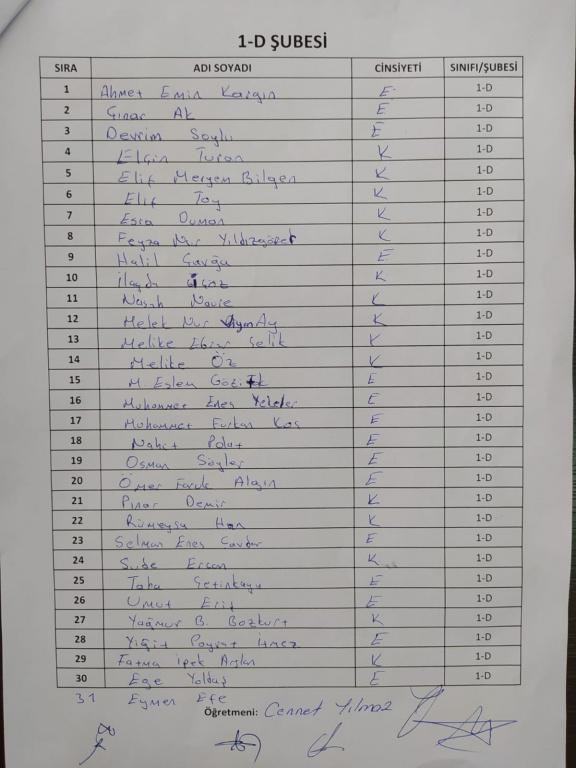 1-D ŞUBESİ
SIRA ADI SOYADI CİNSİYETİ SINIFI/ŞUBESİ
1 Ahmet Emin Kargın E 1-D
2 Çınar Ak E 1-D
3 Devrim Soylu E 1-D
4 Elçin Turan K 1-D
5 Elif Meryem Bilgen K 1-D
6 Elif Toy K 1-D
7 Esra Duman K 1-D
8 Feyza Nur K 1-D
9 Halil Çavğa E 1-D
10 K 1-D
11 K 1-D
12 Melek Nur Ay K 1-D
13 Melike Ebrar Çelik K 1-D
14 Melike Öz K 1-D
15 M. E 1-D
16 Muhammet Enes E 1-D
17 Muhammet Furkan Koş E 1-D
18 Polat E 1-D
19 Osman Söyler E 1-D
20 Ömer Faruk Algın E 1-D
21 Pınar Demir K 1-D
22 Rümeysa Han K 1-D
23 Selman Enes E 1-D
24 Sude Ercan K 1-D
25 Taha Çetinkaya E 1-D
26 Umut E 1-D
27 Yağmur B. Bozkurt K 1-D
28 Yiğit Poyraz E 1-D
29 Fatma İpek Arslan K 1-D
30 Ege Yoldaş E 1-D
31 Eymen Efe
Öğretmeni: Cennet Yılmaz